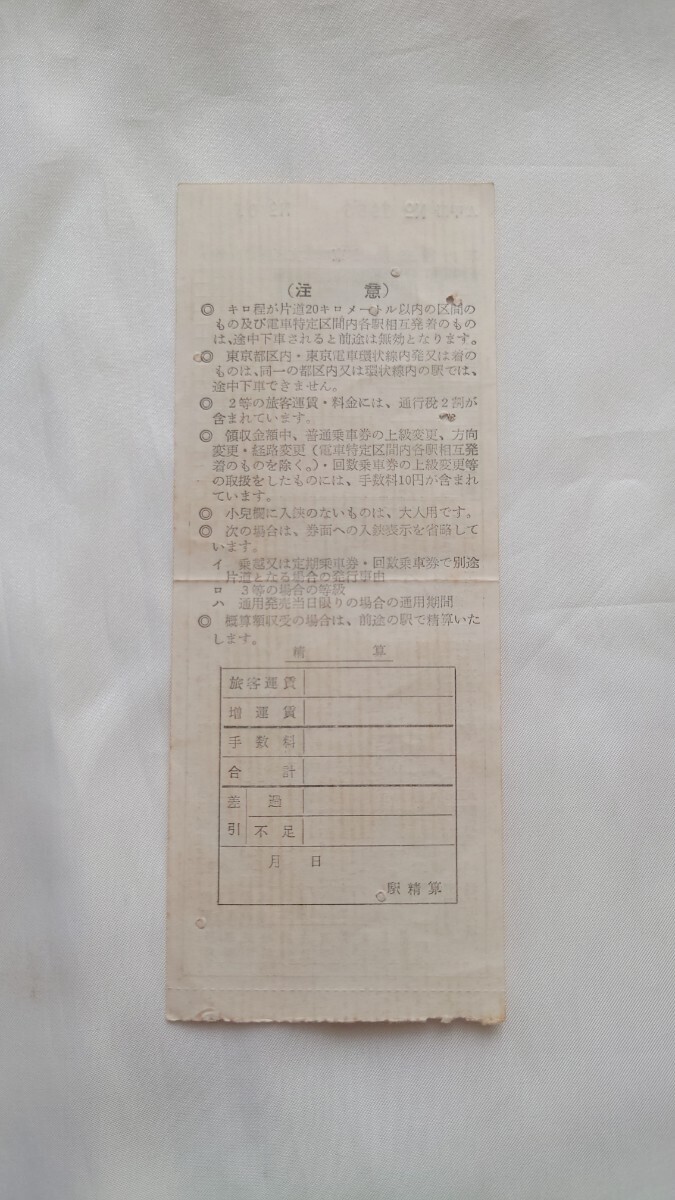 (注　意)
◎ キロ程が片道20キロメートル以内の区間の
もの及び電車特定区間内各駅相互発着のもの
は、途中下車されると前途は無効となります。
◎ 東京都区内・東京電車環状線内発又は着の
ものは、同一の都区内又は環状線内の駅では、
途中下車できません。
◎ 2等の旅客運賃・料金には、通行税2割が
含まれています。
◎ 領収金額中、普通乗車券の上級変更、方向
変更・経路変更（電車特定区間内各駅相互発
着のものを除く。）・回数乗車券の上級変更等
の取扱をしたものには、手数料10円が含まれ
ています。
◎ 小児欄に入鋏のないものは、大人用です。
◎ 次の場合は、券面への入鋏表示を省略して
います。
イ 乗越又は定期乗車券・回数乗車券で別途
片道となる場合の発行事由
ロ 3等の場合の等級
ハ 通用発売当日限りの場合の通用期間
◎ 概算額収受の場合は、前途の駅で精算いた
します。
精　算
旅客運賃
増運賃
手数料
合計
差引 過
不足
月　日
駅精算